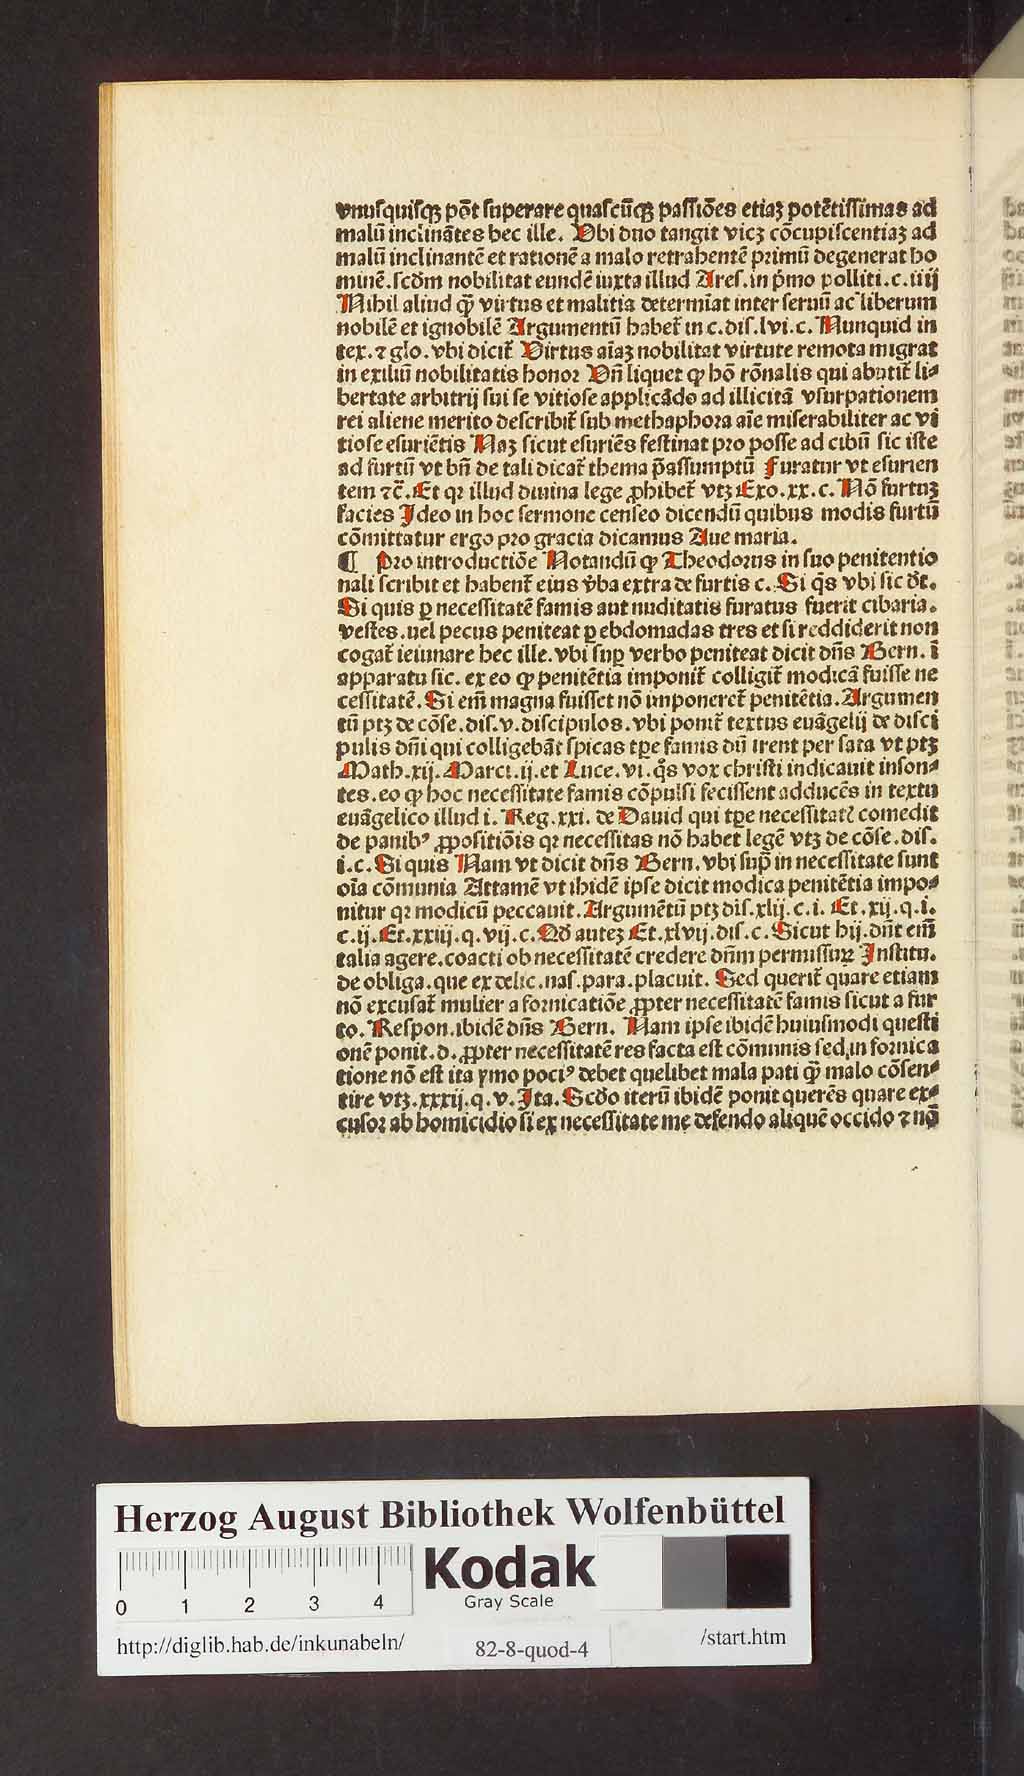 vnuſquiſqꝫ põt ſuperare quaſcũqꝫ paſſiões etiaꝫ potẽtiſſimas ad
malũ inclinãtes hec ille. Ubi dño tangit vicꝫ cõcupiſcentiaꝫ ad
malũ inclinantẽ et rationẽ a malo retrahentẽ primũ degenerat ho
minẽ. ſcd̃m nobilitat eundẽ iuxta illud Areſ. in p̃mo polliti. c. iiij
Nihil aliud qꝫ̃ virtus et malitia determĩat inter ſeruũ ac liberum
nobilẽ et ignobilẽ Argumentũ habet̃ in c. diſ. lvi. c. Nunquid in
tex. ⁊ glo. vbi dicit̃ Virtus aĩaꝫ nobilitat virtute remota migrat
in exiliũ nobilitatis honor Vñ liquet ꝙ hõ rõnalis qui abutit̃ li⸗
bertate arbitrij ſui ſe vitioſe applicãdo ad illicitã vſurpationem
rei aliene merito deſcribit̃ ſub methaphora aĩe miſerabiliter ac vi
tioſe eſuriẽtis Naꝫ ſicut eſuriẽs feſtinat pro poſſe ad cibũ ſic iſte
ad furtũ vt bñ de tali dicat̃ thema p̃aſſumptũ Furatur vt eſurien
tem ⁊c̃. Et qꝛ illud diuina lege ꝓhibet̃ vtꝫ Exo. xx. c. Nõ furtuꝫ
facies Ideo in hoc ſermone cenſeo dicendũ quibus modis furtũ
cõmittatur ergo pro gracia dicamus Aue maria.
¶ Pro introductiõe Notandũ ꝙ Theodorus in ſuo penitentio
nali ſcribit et habent̃ eius v̓ba extra de furtis c. Si q̃s vbi ſic d̃t.
Si quis ꝑ neceſſitatẽ famis aut nuditatis furatus fuerit cibaria.
veſtes. uel pecus peniteat ꝑ ebdomadas tres et ſi reddiderit non
cogat̃ ieiunare hec ille. vbi ſuꝑ verbo peniteat dicit dñs Bern. ĩ
apparatu ſic. ex eo ꝙ penitẽtia imponit̃ colligit̃ modicã fuiſſe ne
ceſſitatẽ. Si em̃ magna fuiſſet nõ imponeret̃ penitẽtia. Argumen
tũ ptꝫ de cõſe. diſ. v. diſcipulos. vbi ponit̃ textus euãgelij de diſci
pulis dñi qui colligebãt ſpicas tꝑe famis dũ irent per ſata vt ptꝫ
Math. xij. Marci. ij. et Luce. vi. q̃s vox chriſti indicauit inſon⸗
tes. eo ꝙ hoc neceſſitate famis cõpulſi feciſſent adducẽs in textu
euãgelico illud i. Reg. xxi. de Dauid qui tꝑe neceſſitatꝭ comedit
de panibꝰ ꝓpoſitiõis qꝛ neceſſitas nõ habet legẽ vtꝫ de cõſe. diſ.
i. c. Si quis Nam vt dicit dñs Bern. vbi ſup̃ in neceſſitate ſunt
oĩa cõmunia Attamẽ vt ibidẽ ipſe dicit modica penitẽtia impo⸗
nitur qꝛ modicũ peccauit. Argumẽtũ ptꝫ diſ. xlij. c. i. Et. xij. q. i.
c. ij. Et. xxiij. q. vij. c. Qd̃ auteꝫ Et. xlvij. diſ. c. Sicut hij. dñt em̃
talia agere. coacti ob neceſſitatẽ credere dñm permiſſuꝝ Inſtitu.
de obliga. que ex delic. naſ. para. placuit. Sed querit̃ quare etiam
nõ excuſat̃ mulier a fornicatiõe ꝓpter neceſſitatẽ famis ſicut a fur
to. Reſpon. ibidẽ dñs Bern. Nam ipſe ibidẽ huiuſmodi queſti
onẽ ponit. d. ꝓpter neceſſitatẽ res facta eſt cõmunis ſed in fornica
tione nõ eſt ita ymo pociꝰ debet quelibet mala pati qꝫ̃ malo cõſen⸗
tire vtꝫ. xxxij. q. v. Ita. Scd̃o iterũ ibidẽ ponit querẽs quare ex⸗
cuſor ab homicidio ſi ex neceſſitate me defendo aliquẽ occido ⁊ nõ
Herzog August Bibliothek Wolfenbüttel
Kodak
Gray Scale
0 1 2 3 4
http://diglib.hab.de/inkunabeln/
82-8-quod-4
/start.htm